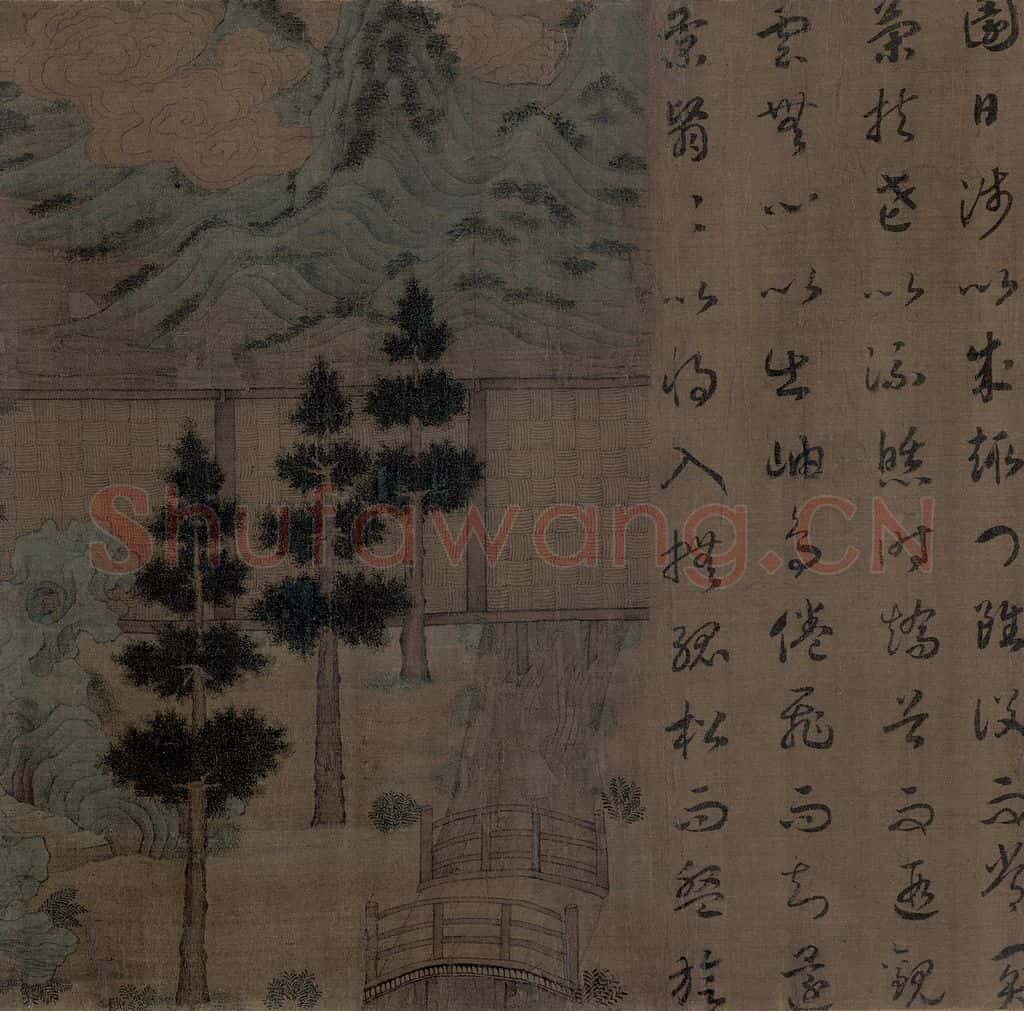 園日涉以成趣門雖設而常關
策扶老以流憩時矯首而遐觀
雲無心以出岫鳥倦飛而知還
景翳〻以將入撫孤松而盤旋
Shufawang.CN